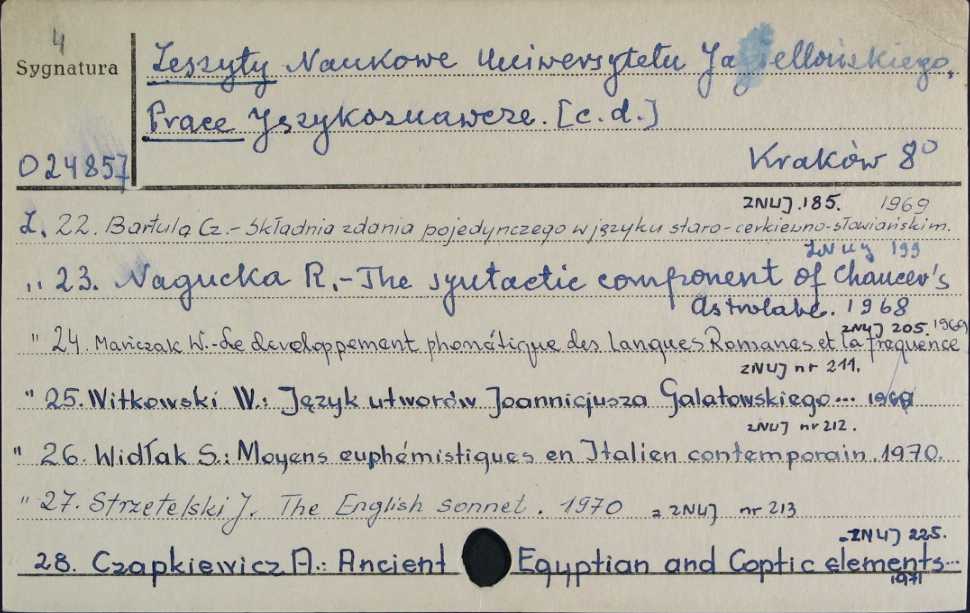 4
Sygnatura
Zeszyty Naukowe Uniwersytetu Jagiellońskiego,
Prace Językoznawcze. [c.d.]
024857
Kraków 8°
ZNUJ.185. 1969
Z. 22. Bartula Cz.- Składnia zdania pojedynczego w języku staro-cerkiewno-słowiańskim.
ZNUJ 199
" 23. Nagucka R.-The syntactic component of Chaucer's
Astrolabe. 1968
ZNUJ 205. 1969
" 24. Mańczak W.-Le developpement phonétique des Langues Romanes et la frequence
ZNUJ nr 211.
" 25. Witkowski W.: Język utworów Joannicjusza Galatowskiego... 1969
ZNUJ nr 212.
" 26. Widłak S.: Moyens euphémistiques en Italien contemporain. 1970.
" 27. Strzetelski J. The English sonnet. 1970 = ZNUJ nr 213
=ZNUJ 225.
28. Czapkiewicz A.: Ancient Egyptian and Coptic elements...
1971